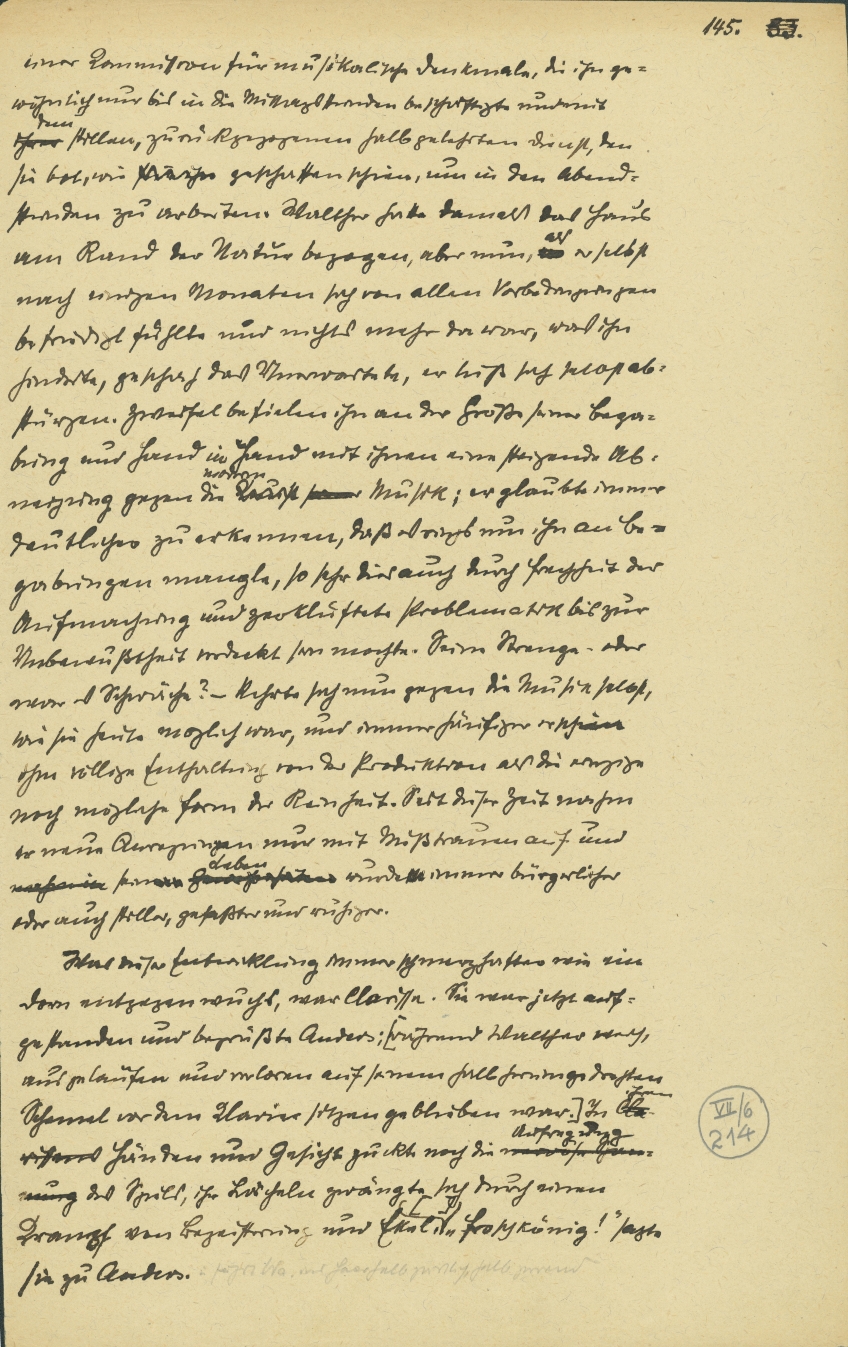 145. 83.
einer Kommission für musikalische Denkmale, die ihn ge=
wöhnlich nur bis in die Mittagsstunden beschäftigte und mit
dem
ihrer stillen, zurückgezogenen halbgelehrten Dienst, den
sie bot, wie für ihn geschaffen schien, um in den Abend=
stunden zu arbeiten. Walther hatte damals das Haus
als
am Rand der Natur bezogen, aber nun, wo er selbst
nach einigen Monaten sich von allen Vorbedingungen
befriedigt fühlte und nichts mehr da war, was ihn
hinderte, geschah das Unerwartete, er ließ sich selbst ab=
stürzen. Zweifel befielen ihn an der Größe seiner Bega=
bung und Hand in Hand mit ihnen eine steigende Ab=
moderne
neigung gegen die Kunst seiner Musik; er glaubte immer
deutlicher zu erkennen, daß es rings um ihn an Be=
gabungen mangle, so sehr dies auch durch Frechheit der
Aufmachung und zerklüftete Problematik bis zur
Unbewußtheit verdeckt sein mochte. Seine Strenge - oder
war es Schwäche? – kehrte sich nun gegen die Musik selbst,
wie sie heute möglich war, und immer häufiger erschien
ihm völlige Enthaltung von der Produktion als die einzige
noch mögliche Form der Reinheit. Seit dieser Zeit nahm
er neue Anregungen nur mit Mißtrauen auf und
Leben
sein wurde immer bürgerlicher
oder auch stiller, gefaßter und ruhiger.
Was dieser Entwicklung immer schmerzhafter wie ein
Dorn entgegenwuchs, war Clarisse. Sie war jetzt auf=
gestanden und begrüßte Anders; [während Walther weich,
ausgelaufen und verloren auf seinem halb herumgedrehten
ihren
Schemel vor dem Klavier sitzen geblieben war.] In Cla=
Aufregung
rissens Händen und Gesicht zuckte noch die nervöse Span=
nung des Spiels, ihr Lächeln zwängte sich durch einen
Krampf von Begeisterung und Ekel. „Froschkönig!" sagte
sie zu Anders.
VII/6
214